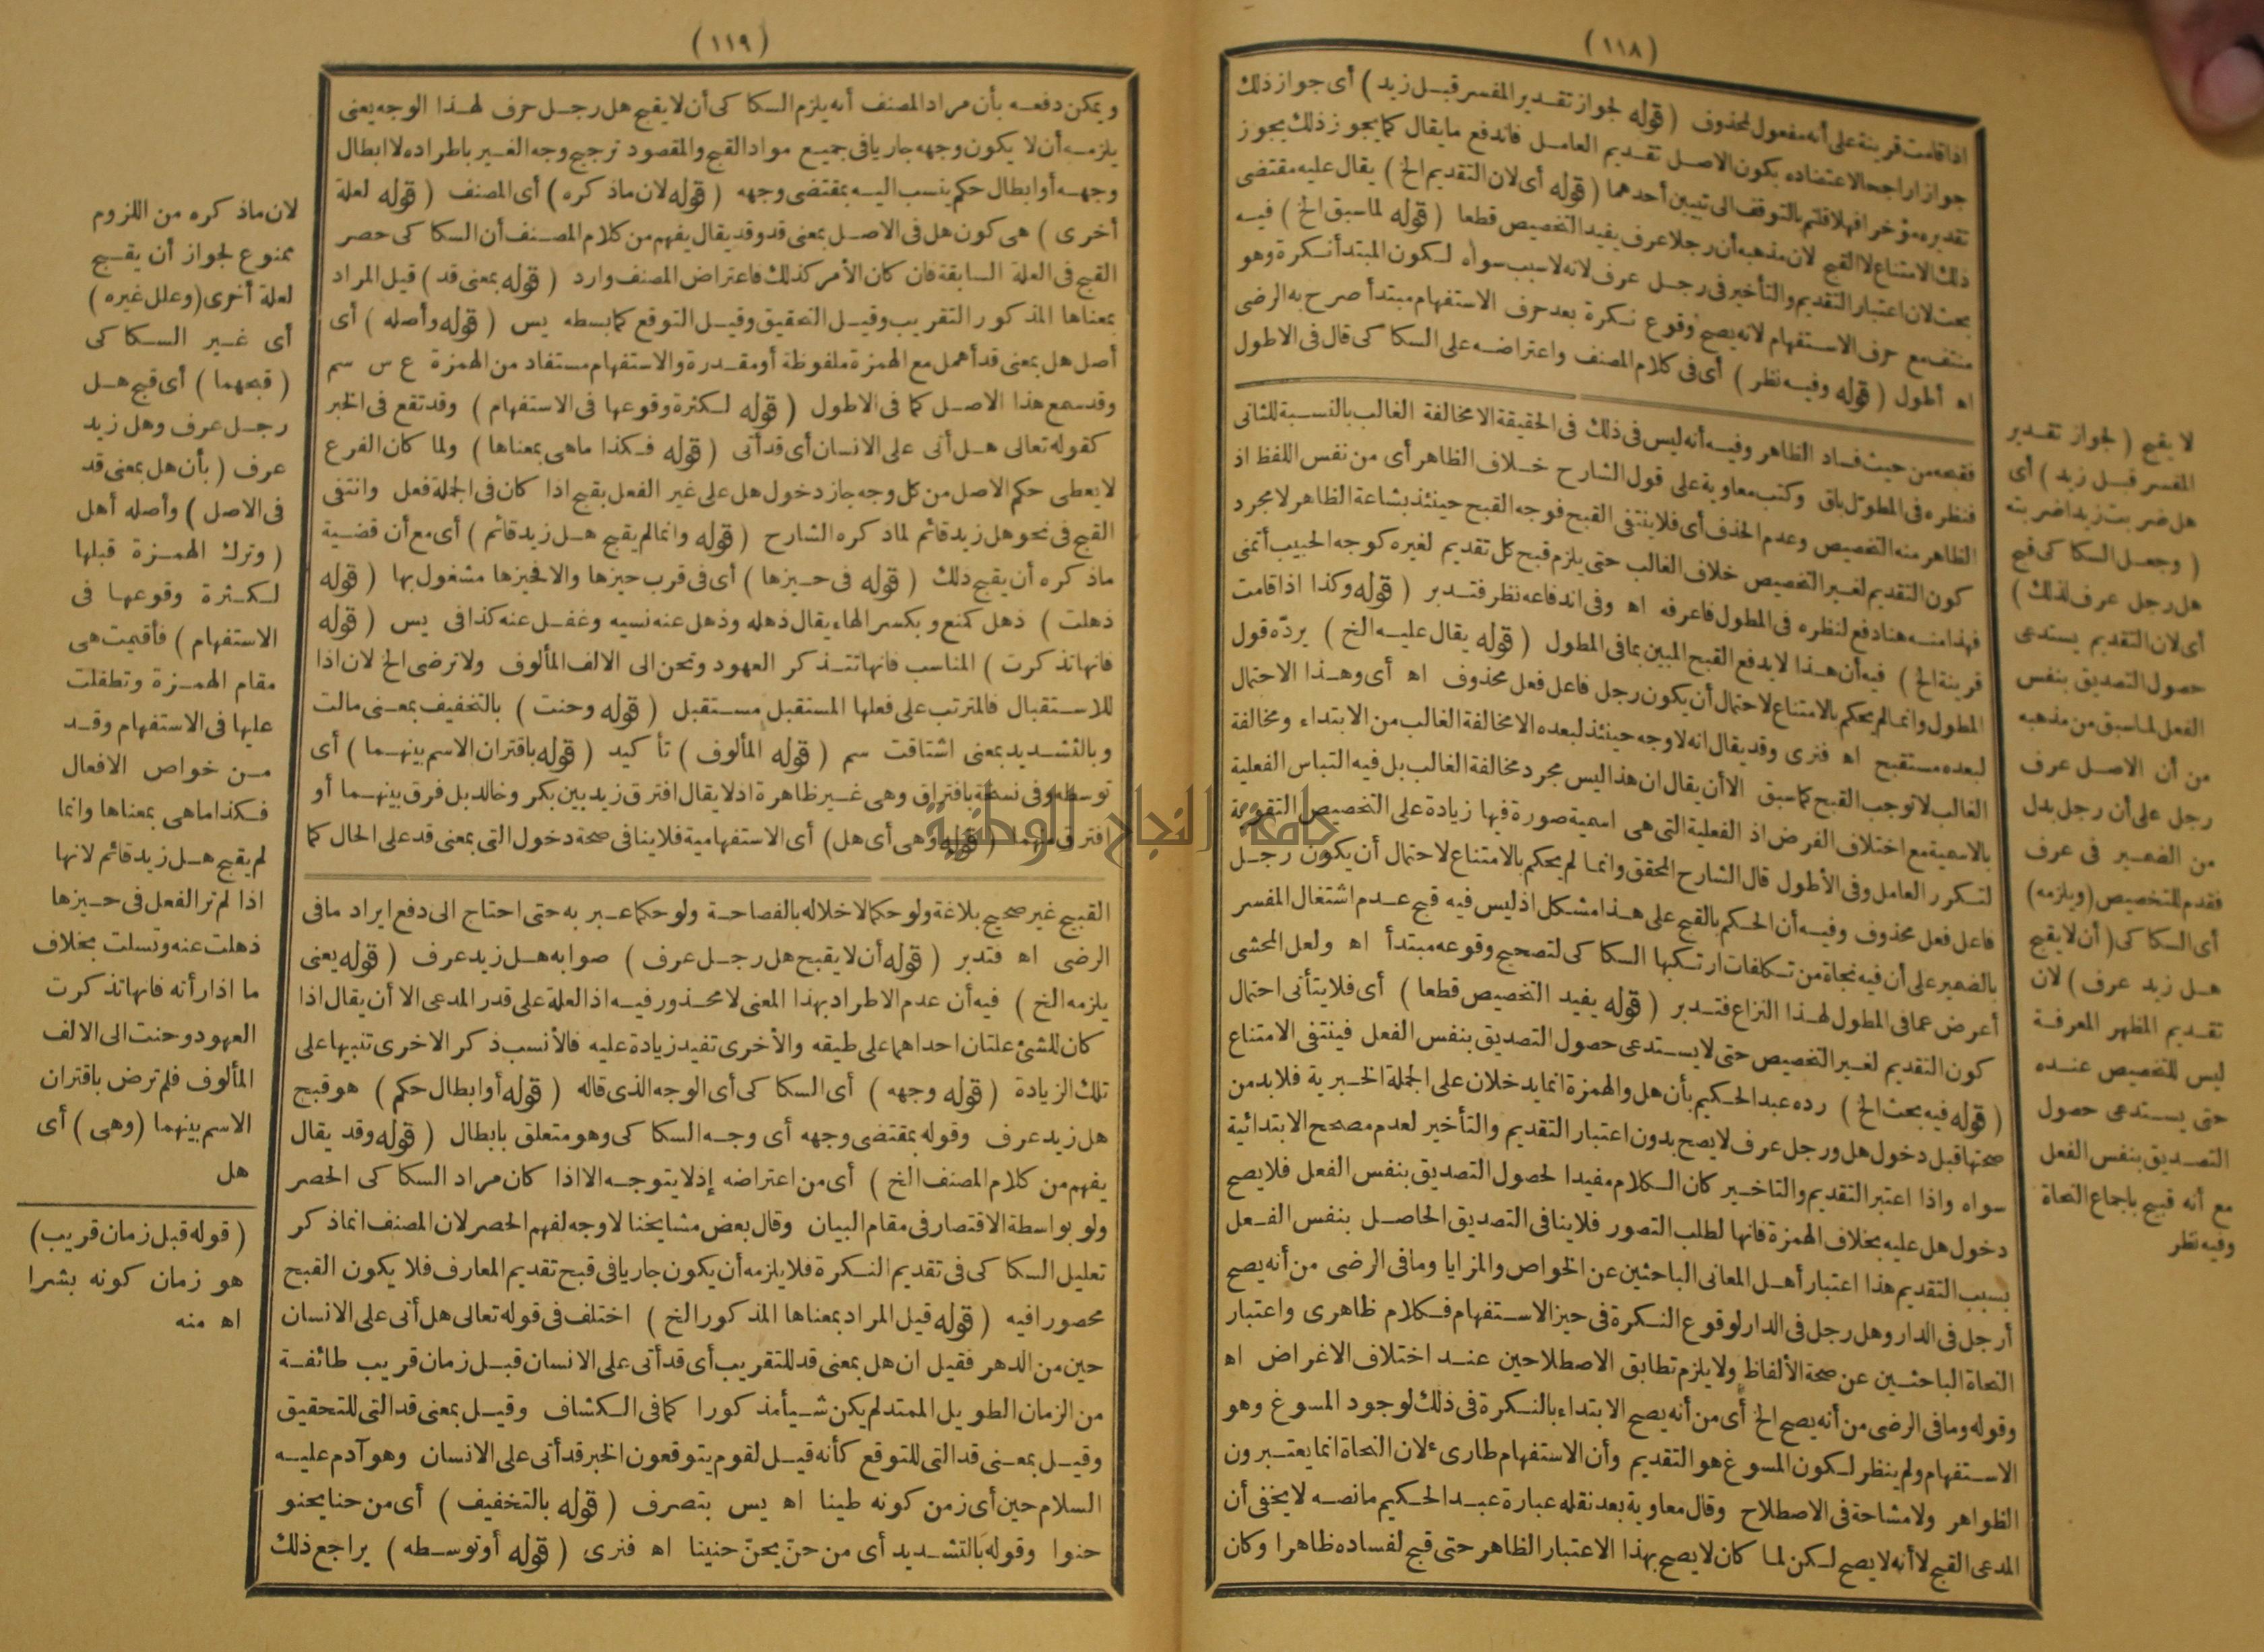 (١١٨)
اذا قامت قرينة على أنه مفعول لمحذوف (قوله لجواز تقدير المفسر قبل زيد) أى جواز ذلك
جوازا راجحا لاعتضاده بكون الاصل تقديم العامل فاندفع ما يقال كما يجوز ذلك يجوز
تقديره مؤخرا فهلا قلتم بالتوقف الى تبيين أحدهما (قوله أى لان التقديم الخ) يقال عليه مقتضى
ذلك الامتناع لا القبح لان مذهبه أن رجلا عرف يفيد التخصيص قطعا (قوله لما سبق الخ) فيه
بحث لان اعتبار التقديم والتأخير فى رجل عرف لانه لا سبب سواه لكون المبتدأ نكرة وهو
منتف مع حرف الاستفهام لانه يصح وقوع نكرة بعد حرف الاستفهام مبتدأ صرح به الرضى
اه أطول (قوله وفيه نظر) أى فى كلام المصنف واعتراضه على السكاكى قال فى الاطول
فقبحه من حيث فساد الظاهر وفيه أنه ليس فى ذلك فى الحقيقة الا مخالفة الغالب بالنسبة للثانى
فنظره فى المطوّل باق وكتب معاوية على قول الشارح خلاف الظاهر أى من نفس اللفظ اذ
الظاهر منه التخصيص وعدم الحذف أى فلا ينتفى القبح فوجه القبح حينئذ بشاعة الظاهر لا مجرد
كون التقديم لغير التخصيص خلاف الغالب حتى يلزم قبح كل تقديم لغيره كوجه الحبيب أتمنى
فهذا منه هنا دفع لنظره فى المطول فاعرفه اه وفى اندفاعه نظر فتدبر (قوله وكذا اذا قامت
قرينة الخ) فيه أن هذا لا يدفع القبح المبين بما فى المطول (قوله يقال عليه الخ) يردّه قول
المطول وانما لم يحكم بالامتناع لاحتمال أن يكون رجل فاعل فعل محذوف اه أى وهذا الاحتمال
لبعده مستقبح اه فنرى وقد يقال انه لا وجه حينئذ لبعده الا مخالفة الغالب من الابتداء ومخالفة
الغالب لا توجب القبح كما سبق الا أن يقال ان هذا ليس مجرد مخالفة الغالب بل فيه التباس الفعلية
بالاسمية مع اختلاف الغرض اذ الفعلية التى هى اسمية صورة فيها زيادة على التخصيص التقوية
لتكرر العامل وفى الأطول قال الشارح المحقق وانما لم يحكم بالامتناع لاحتمال أن يكون رجل
فاعل فعل محذوف وفيه أن الحكم بالقبح على هذا مشكل اذ ليس فيه قبح عدم اشتغال المفسر
بالضمير على أن فيه نجاة من تكلفات ارتكبها السكاكى لتصحيح وقوعه مبتدأ اه ولعل المحشى
أعرض عما فى المطول لهذا النزاع فتدبر (قوله يفيد التخصيص قطعا) أى فلا يتأتى احتمال
كون التقديم لغير التخصيص حتى لا يستدعى حصول التصديق بنفس الفعل فينتفى الامتناع
(قوله فيه بحث الخ) رده عبد الحكيم بأن هل والهمزة انما يدخلان على الجملة الخبرية فلا بد من
صحتها قبل دخول هل ورجل عرف لا يصح بدون اعتبار التقديم والتأخير لعدم مصحح الابتدائية
سواه واذا اعتبر التقديم والتاخير كان الكلام مفيدا لحصول التصديق بنفس الفعل فلا يصح
دخول هل عليه بخلاف الهمزة فانها لطلب التصور فلا ينافى التصديق الحاصل بنفس الفعل
بسبب التقديم هذا اعتبار أهل المعانى الباحثين عن الخواص والمزايا وما فى الرضى من أنه يصح
أرجل فى الدار وهل رجل فى الدار لوقوع النكرة فى حيز الاستفهام فكلام ظاهرى واعتبار
النحاة الباحثين عن صحة الألفاظ ولا يلزم تطابق الاصطلاحين عند اختلاف الاغراض اه
وقوله وما فى الرضى من أنه يصح الخ أى من أنه يصح الابتداء بالنكرة فى ذلك لوجود المسوغ وهو
الاستفهام ولم ينظر لكون المسوغ هو التقديم وأن الاستفهام طارىء لان النحاة انما يعتبرون
الظواهر ولا مشاحة فى الاصطلاح وقال معاوية بعد نقله عبارة عبد الحكيم ما نصه لا يخفى أن
المدعى القبح لا أنه لا يصح لكن لما كان لا يصح بهذا الاعتبار الظاهر حتى قبح لفساده ظاهرا وكان
لا يقبح (لجواز تقدير
المفسر قبل زيد) أى
هل ضربت زيدا ضربته
(وجعل السكاكى قبح
هل رجل عرف لذلك)
أى لان التقديم يستدعى
حصول التصديق بنفس
الفعل لما سبق من مذهبه
من أن الاصل عرف
رجل على أن رجل بدل
من الضمير فى عرف
فقدم للتخصيص (ويلزمه)
أى السكاكى (أن لا يقبح
هل زيد عرف) لان
تقديم المظهر المعرفة
ليس للتخصيص عنده
حتى يستدعى حصول
التصديق بنفس الفعل
مع أنه قبيح باجماع النحاة
وفيه نظر
(١١٩)
ويمكن دفعه بأن مراد المصنف أنه يلزم السكاكى أن لا يقبح هل رجل عرف لهذا الوجه يعنى
يلزمه أن لا يكون وجهه جاريا فى جميع مواد القبح والمقصود ترجيح وجه الغير باطراده لا ابطال
وجهه أو ابطال حكم ينسب اليه بمقتضى وجهه (قوله لان ماذكره) أى المصنف (قوله لعلة
أخرى) هى كون هل فى الاصل بمعنى قد وقد يقال يفهم من كلام المصنف أن السكاكى حصر
القبح فى العلة السابقة فان كان الأمر كذلك فاعتراض المصنف وارد (قوله بمعنى قد) قيل المراد
بمعناها المذكور التقريب وقيل التحقيق وقيل التوقع كما بسطه يس (قوله وأصله) أى
أصل هل بمعنى قد أهمل مع الهمزة ملفوظة أو مقدرة والاستفهام مستفاد من الهمزة ع س سم
وقد سمع هذا الاصل كما فى الاطول (قوله لكثرة وقوعها فى الاستفهام) وقد تقع فى الخبر
كقوله تعالى هل أتى على الانسان أى قد أتى (قوله فكذا ماهى بمعناها) ولما كان الفرع
لا يعطى حكم الاصل من كل وجه جاز دخول هل على غير الفعل بقبح اذا كان فى الجملة فعل وانتفى
القبح فى نحو هل زيد قائم لما ذكره الشارح (قوله وانما لم يقبح هل زيد قائم) أى مع أن قضية
ماذكره أن يقبح ذلك (قوله فى حيزها) أى فى قرب حيزها والا فحيزها مشغول بها (قوله
ذهلت) ذهل كمنع وبكسر الهاء يقال ذهله وذهل عنه نسيه وغفل عنه كذا فى يس (قوله
فانها تذكرت) المناسب فانها تتذكر العهود وتحن الى الالف المألوف ولا ترضى الخ لان اذا
للاستقبال فالمترتب على فعلها المستقبل مستقبل (قوله وحنت) بالتخفيف بمعنى مالت
وبالتشديد بمعنى اشتاقت سم (قوله المألوف) تأكيد (قوله باقتران الاسم بينهما) أى
توسطه وفى نسخة بافتراق وهى غير ظاهرة اذ لا يقال افترق زيد بين بكر وخالد بل فرق بينهما أو
افترق منهما (قوله وهى أى هل) أى الاستفهامية فلا ينافى صحة دخول التى بمعنى قد على الحال كما
القبيح غير صحيح بلاغة ولو حكما لاخلاله بالفصاحة ولو حكما عبر به حتى احتاج الى دفع ايراد ما فى
الرضى اه فتدبر (قوله أن لا يقبح هل رجل عرف) صوابه هل زيد عرف (قوله يعنى
يلزمه الخ) فيه أن عدم الاطراد بهذا المعنى لا محذور فيه اذ العلة على قدر المدعى الا أن يقال اذا
كان للشئ علتان احداهما على طبقه والأخرى تفيد زيادة عليه فالأنسب ذكر الاخرى تنبيها على
تلك الزيادة (قوله وجهه) أى السكاكى أى الوجه الذى قاله (قوله أو ابطال حكم) هو قبح
هل زيد عرف وقوله بمقتضى وجهه أى وجه السكاكى وهو متعلق بابطال (قوله وقد يقال
يفهم من كلام المصنف الخ) أى من اعتراضه إذ لا يتوجه الا اذا كان مراد السكاكى الحصر
ولو بواسطة الاقتصار فى مقام البيان وقال بعض مشايخنا لا وجه لفهم الحصر لان المصنف انما ذكر
تعليل السكاكى فى تقديم النكرة فلا يلزمه أن يكون جاريا فى قبح تقديم المعارف فلا يكون القبح
محصورا فيه (قوله قيل المراد بمعناها المذكور الخ) اختلف فى قوله تعالى هل أتى على الانسان
حين من الدهر فقيل ان هل بمعنى قد للتقريب أى قد أتى على الانسان قبل زمان قريب طائفة
من الزمان الطويل الممتد لم يكن شيأ مذكورا كما فى الكشاف وقيل بمعنى قد التى للتحقيق
وقيل بمعنى قد التى للتوقع كأنه قيل لقوم يتوقعون الخبر قد أتى على الانسان وهو آدم عليه
السلام حين أى زمن كونه طينا اه يس بتصرف (قوله بالتخفيف) أى من حنا يحنو
حنوا وقوله بالتشديد أى من حنّ يحنّ حنينا اه فنرى (قوله أو توسطه) يراجع ذلك
لان ماذكره من اللزوم
ممنوع لجواز أن يقبح
لعلة أخرى (وعلل غيره)
أى غير السكاكى
(قبحهما) أى قبح هل
رجل عرف وهل زيد
عرف (بأن هل بمعنى قد
فى الاصل) وأصله أهل
(وترك الهمزة قبلها
لكثرة وقوعها فى
الاستفهام) فأقيمت هى
مقام الهمزة وتطفلت
عليها فى الاستفهام وقد
من خواص الافعال
فكذا ماهى بمعناها وانما
لم يقبح هل زيد قائم لانها
اذا لم تر الفعل فى حيزها
ذهلت عنه وتسلت بخلاف
ما اذا رأته فانها تذكرت
العهود وحنت الى الالف
المألوف فلم ترض باقتران
الاسم بينهما (وهى) أى
هل
(قوله قبل زمان قريب)
هو زمان كونه بشرا
اه منه
جامعة النجاح الوطنية